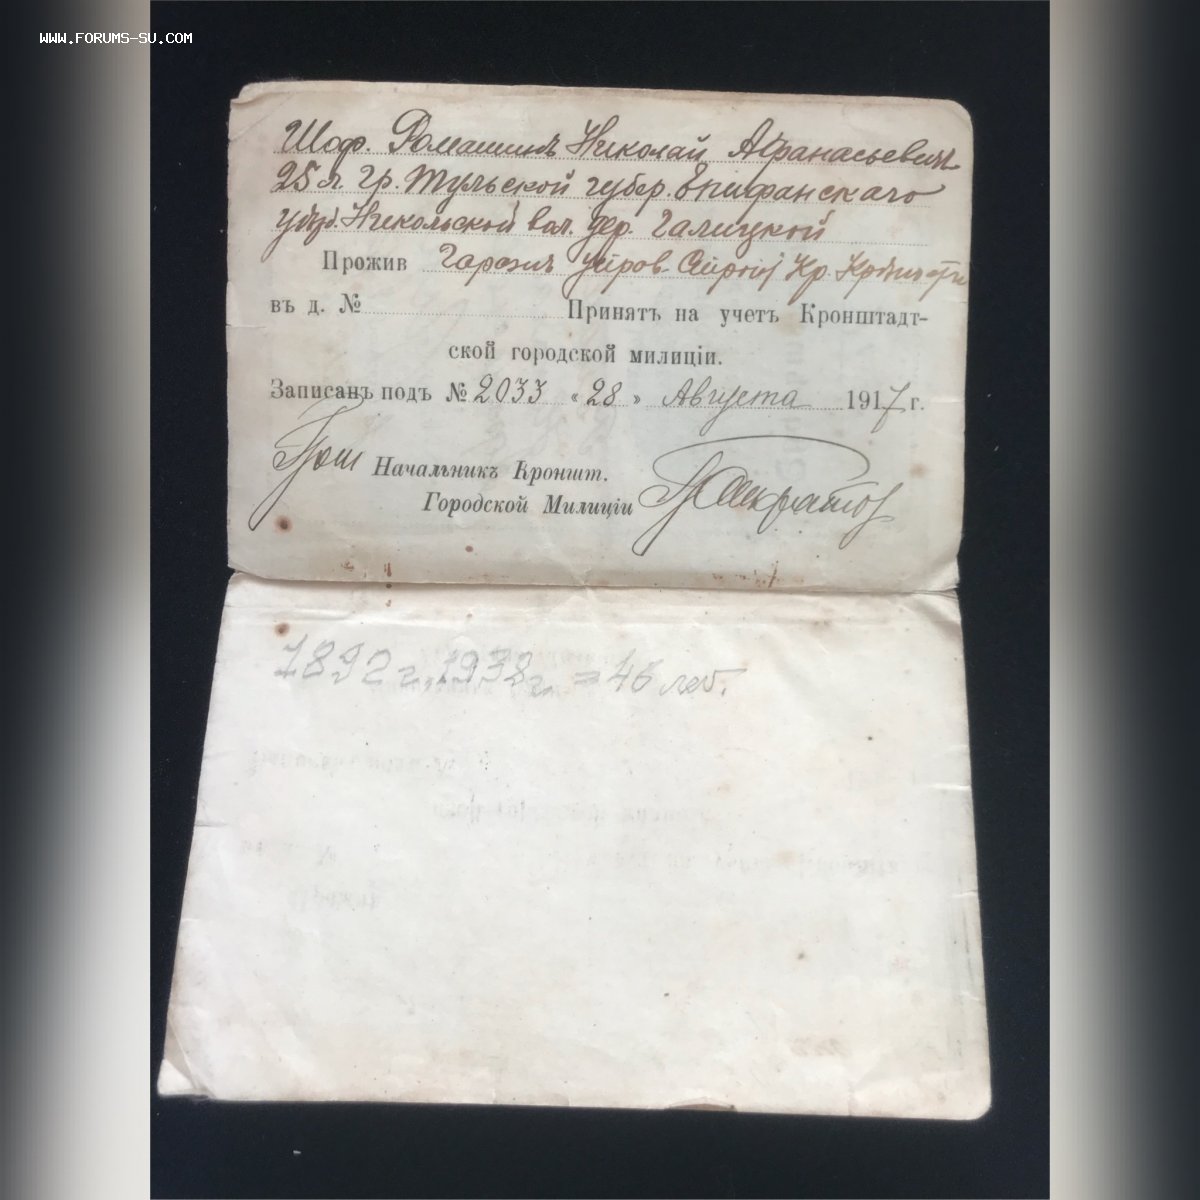 WWW.FORUMS-SU.COM
Шоф. Ромашинъ Николай Афанасьевичъ
25 л. гр. Тульской губер. Епифанскаго
уѣзд. Никольской вол. дер. Галицкой
Прожив Гаражъ Кр.
въ д. № Принятъ на учетъ Кронштадт-
ской городской милиціи.
Записанъ подъ № 2033 «28» Августа 1917 г.
Начальникъ Кроншт.
Городской Милиціи
1892 г. 1938 г. = 46 лет.